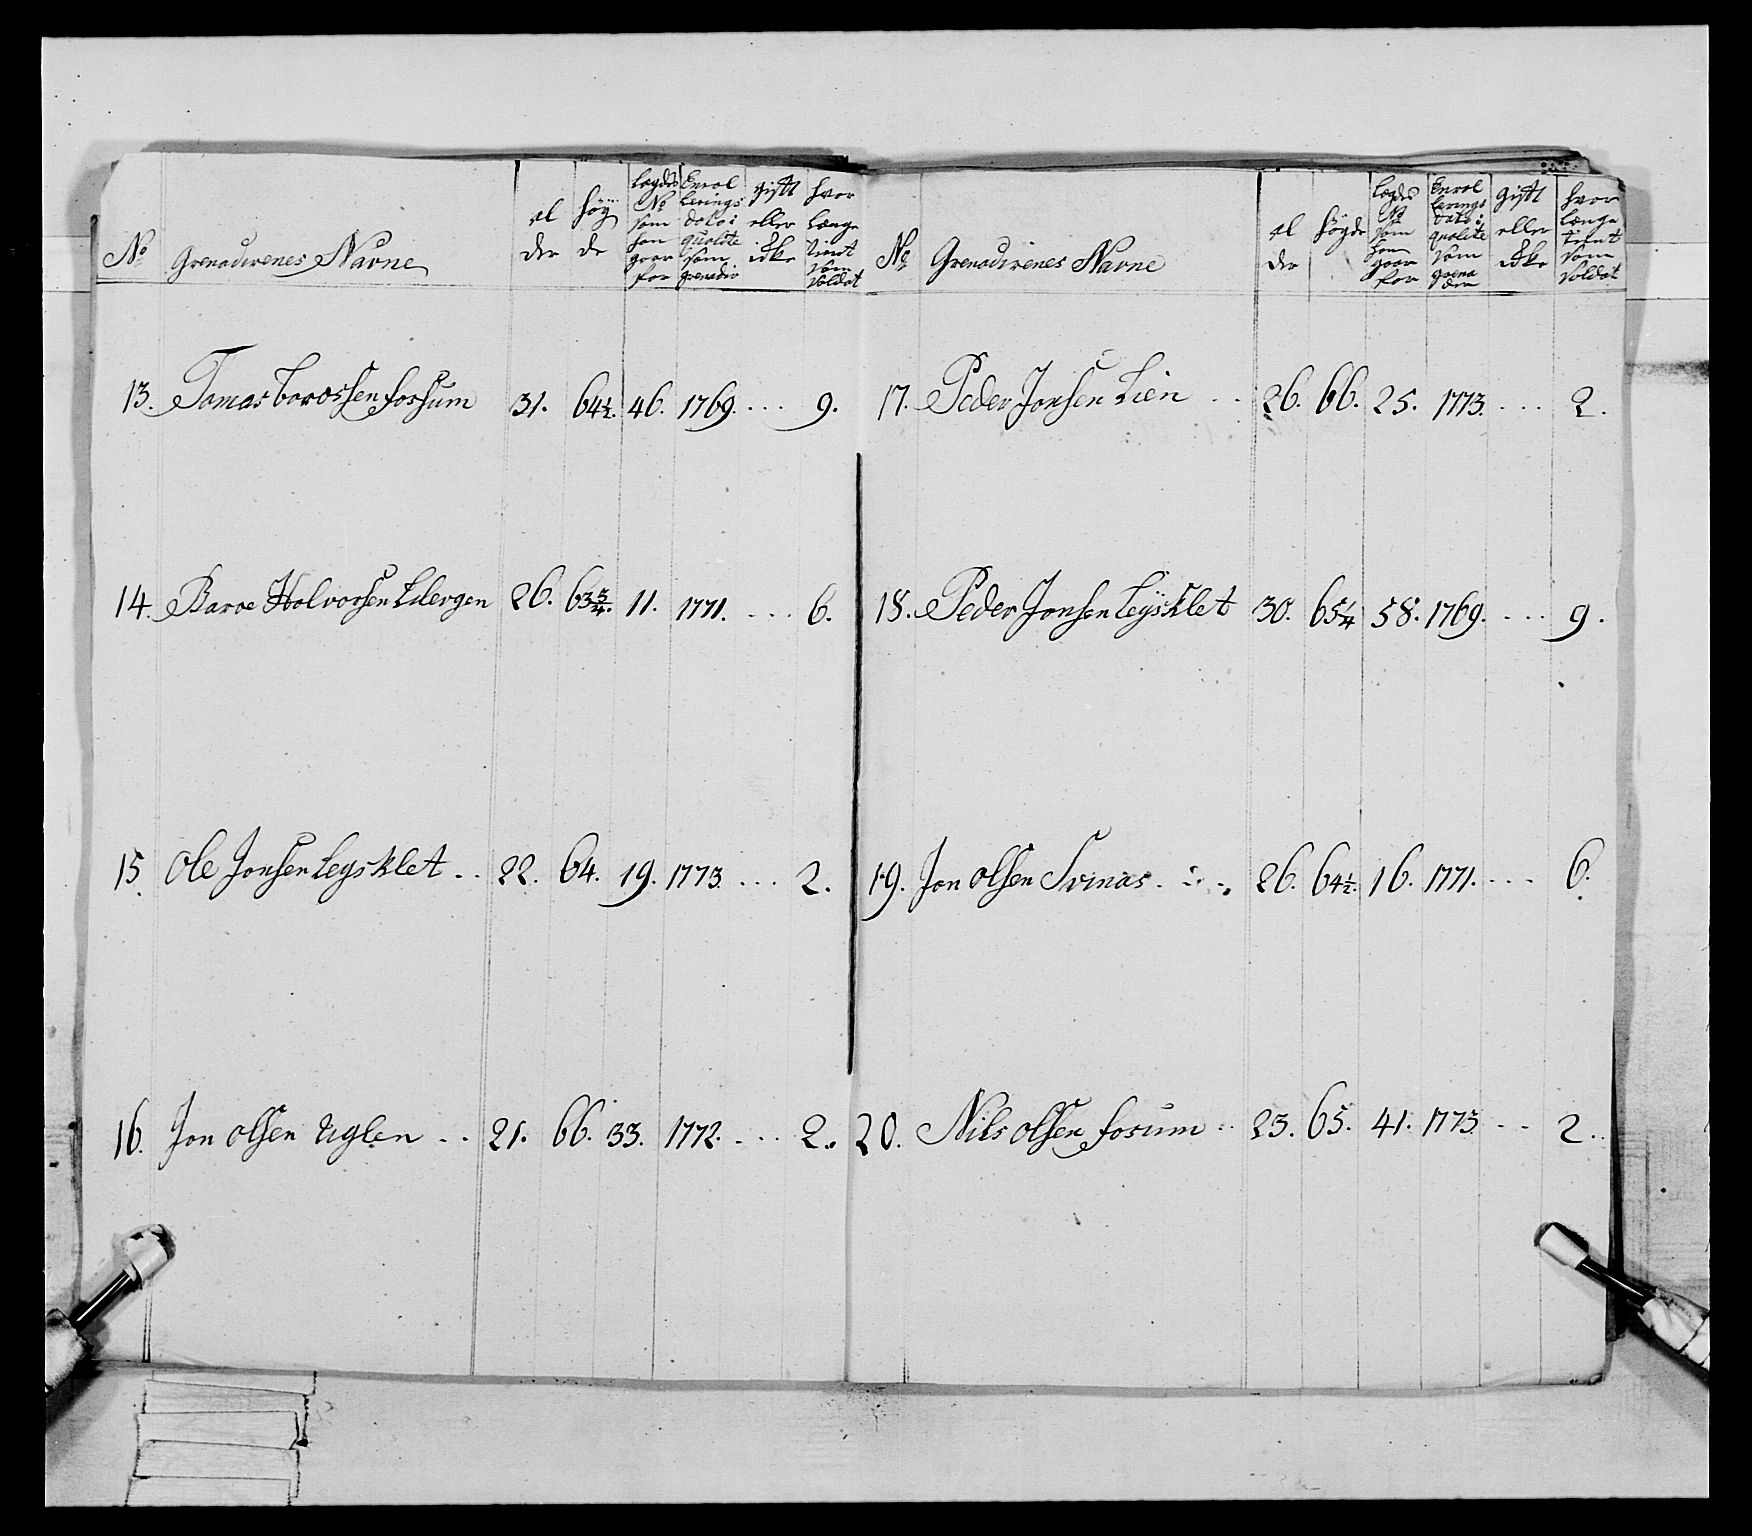 No
Grenadirenes Navne
al
der
høy
de
lægdes
No
som
han
gaar
for
Enrol
lerings
dato i
qualite
som
grenadir
gift
eller
ikke
hvor
længe
tient
som
soldat
13. Tomas Larossen Forsum 31. 64½. 46. 1769. ... 9.
14. Baroe Halvorsen 26. 63¾. 11. 1771. ... 6.
15. Ole Jonsen Leysklet .. 22. 64. 19. 1773. ... 2.
16. Jon Olsen Uglen .. 21. 66. 33. 1772. ... 2.
No
Grenadirenes Navne
al
der
høyde
lægdes
No
som
han
gaar
for
Enrol
lerings
dato i
qualite
som
grena
dær
gift
eller
ikke
hvor
længe
tient
som
soldat
17. Peder Jonsen Lien .. 26. 66. 25. 1773. ... 2.
18. Peder Jonsen Leÿsklet 30. 65¼ 58. 1769. ... 9.
19. Jon Olsen Svinas. 26. 64½. 16. 1771. ... 6.
20. Nils Olsen Fosum .. 23. 65. 41. 1773 .. 2..